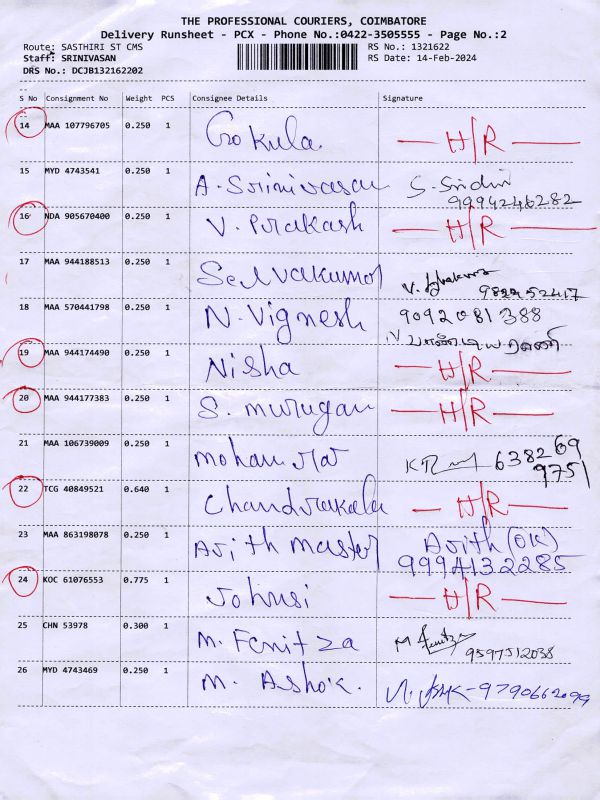 THE PROFESSIONAL COURIERS, COIMBATORE
Delivery Runsheet - PCX - Phone No.:0422-3505555 - Page No.:2
Route: SASTHIRI ST CMS RS No.: 1321622
Staff: SRINIVASAN RS Date: 14-Feb-2024
DRS No.: DCJB132162202
S No Consignment No Weight PCS Consignee Details Signature
14 MAA 107796705 0.250 1 Gokula H/R
15 MYD 4743541 0.250 1 A. Srinivasan S. Sridhr
9994246282
16 NDA 905670400 0.250 1 V. Prakash H/R
17 MAA 944188513 0.250 1 Selvakumar V.
18 MAA 570441798 0.250 1 N. Vignesh 9092081388
19 MAA 944174490 0.250 1 Nisha H/R
20 MAA 944177383 0.250 1 S. murugan H/R
21 MAA 106739009 0.250 1 mohan raj 638269
9751
22 TCG 40849521 0.640 1 Chandrakala H/R
23 MAA 863198078 0.250 1 Ajith master Ajith (OK)
9994132285
24 KOC 61076553 0.775 1 Johnsi H/R
25 CHN 53978 0.300 1 M. Fenitza M Fenitza
9597512038
26 MYD 4743469 0.250 1 M. Ashok. 9790662099